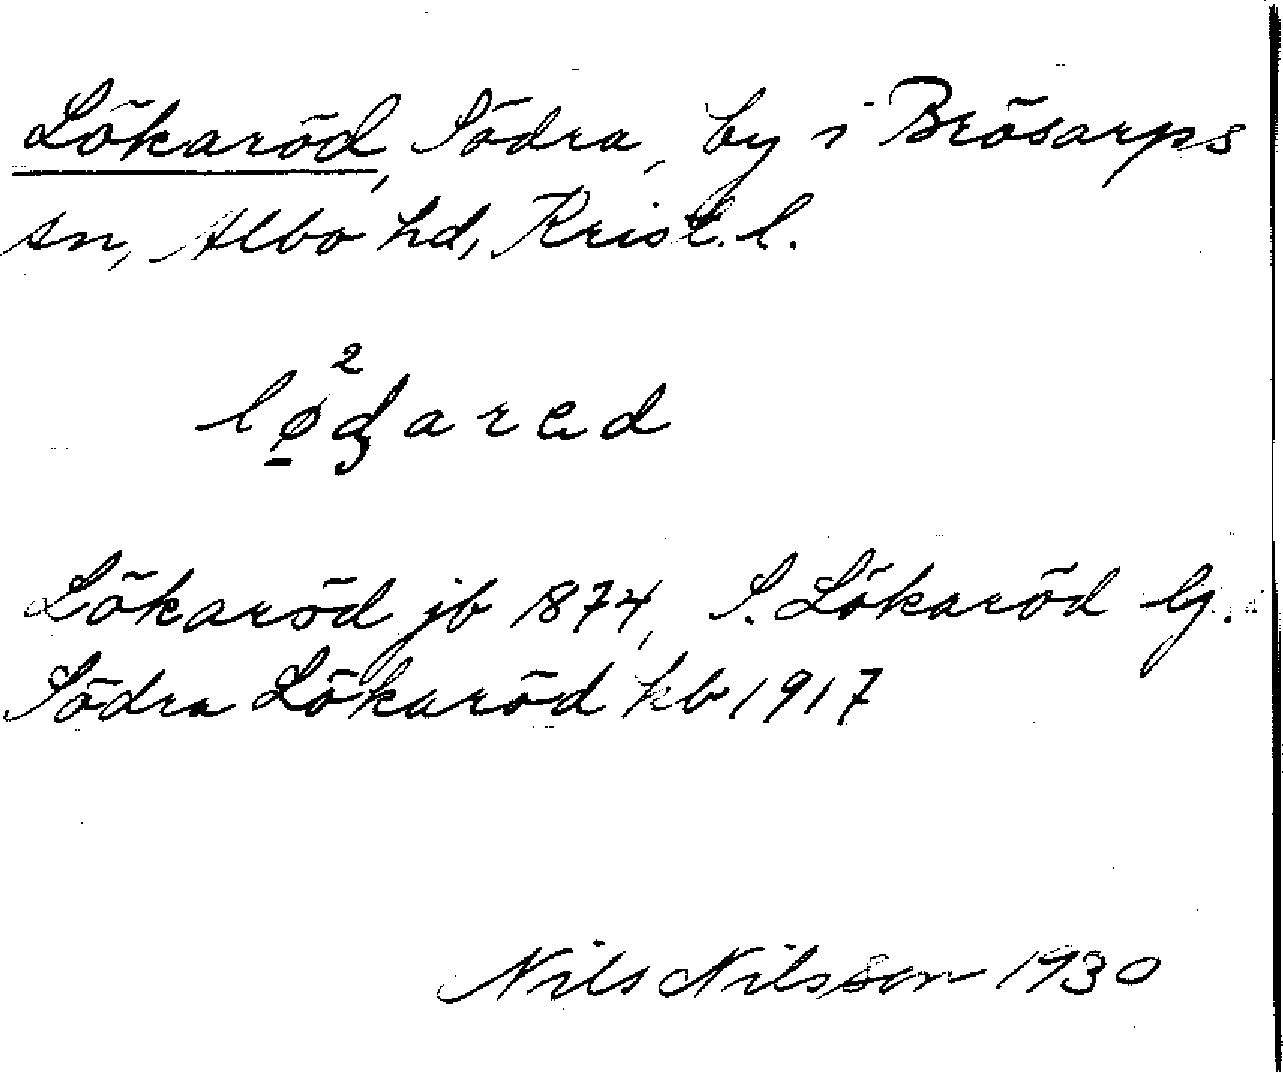 Lökaröd, Södra, by i Brösarps
sn, Albo hd, Krist. l.
Lökaröd jb 1874, S. Lökaröd
Södra Lökaröd kb 1917
Nils Nilsson 1930